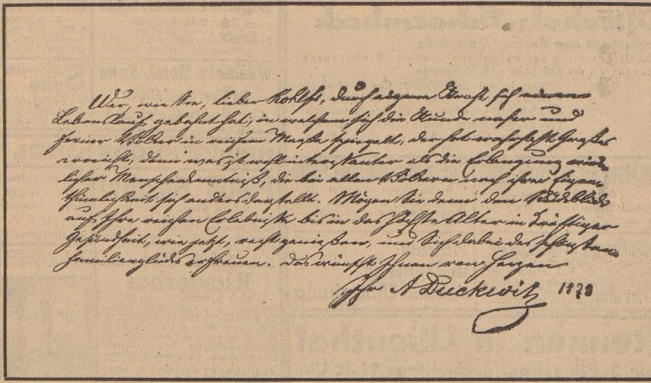 Wer, wie Sie, lieber Rohlfs, durch eigene Kraft sich einen
Lebenslauf gebahnt hat, in welchem sich die Kunde naher und
ferner Völker in reichem Maaße spiegelt, der hat wahrhaft Großes
erreicht, denn was ist wohl interessanter als die Erlangung wirk-
licher Menschenkenntniß, die bei allen Völkern nach ihrer Eigen-
thümlichkeit sich anders darstellt. Mögen Sie denn den Rückblick
auf Ihre reichen Erlebnisse bis in das höchste Alter in kräftiger
Gesundheit, wie jetzt, recht genießen, und Sich dabei des schönsten
Familienglücks erfreuen. Das wünscht Ihnen von Herzen
Ihr A Duckwitz 1879